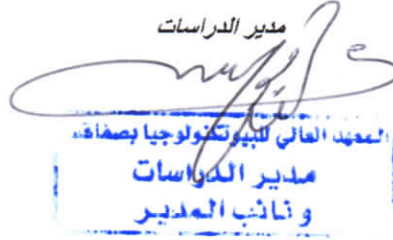 مدير الدراسات
المعهد العالي للبيوتكنولوجيا بصفاقس
مدير الدراسات
و نائب المدير